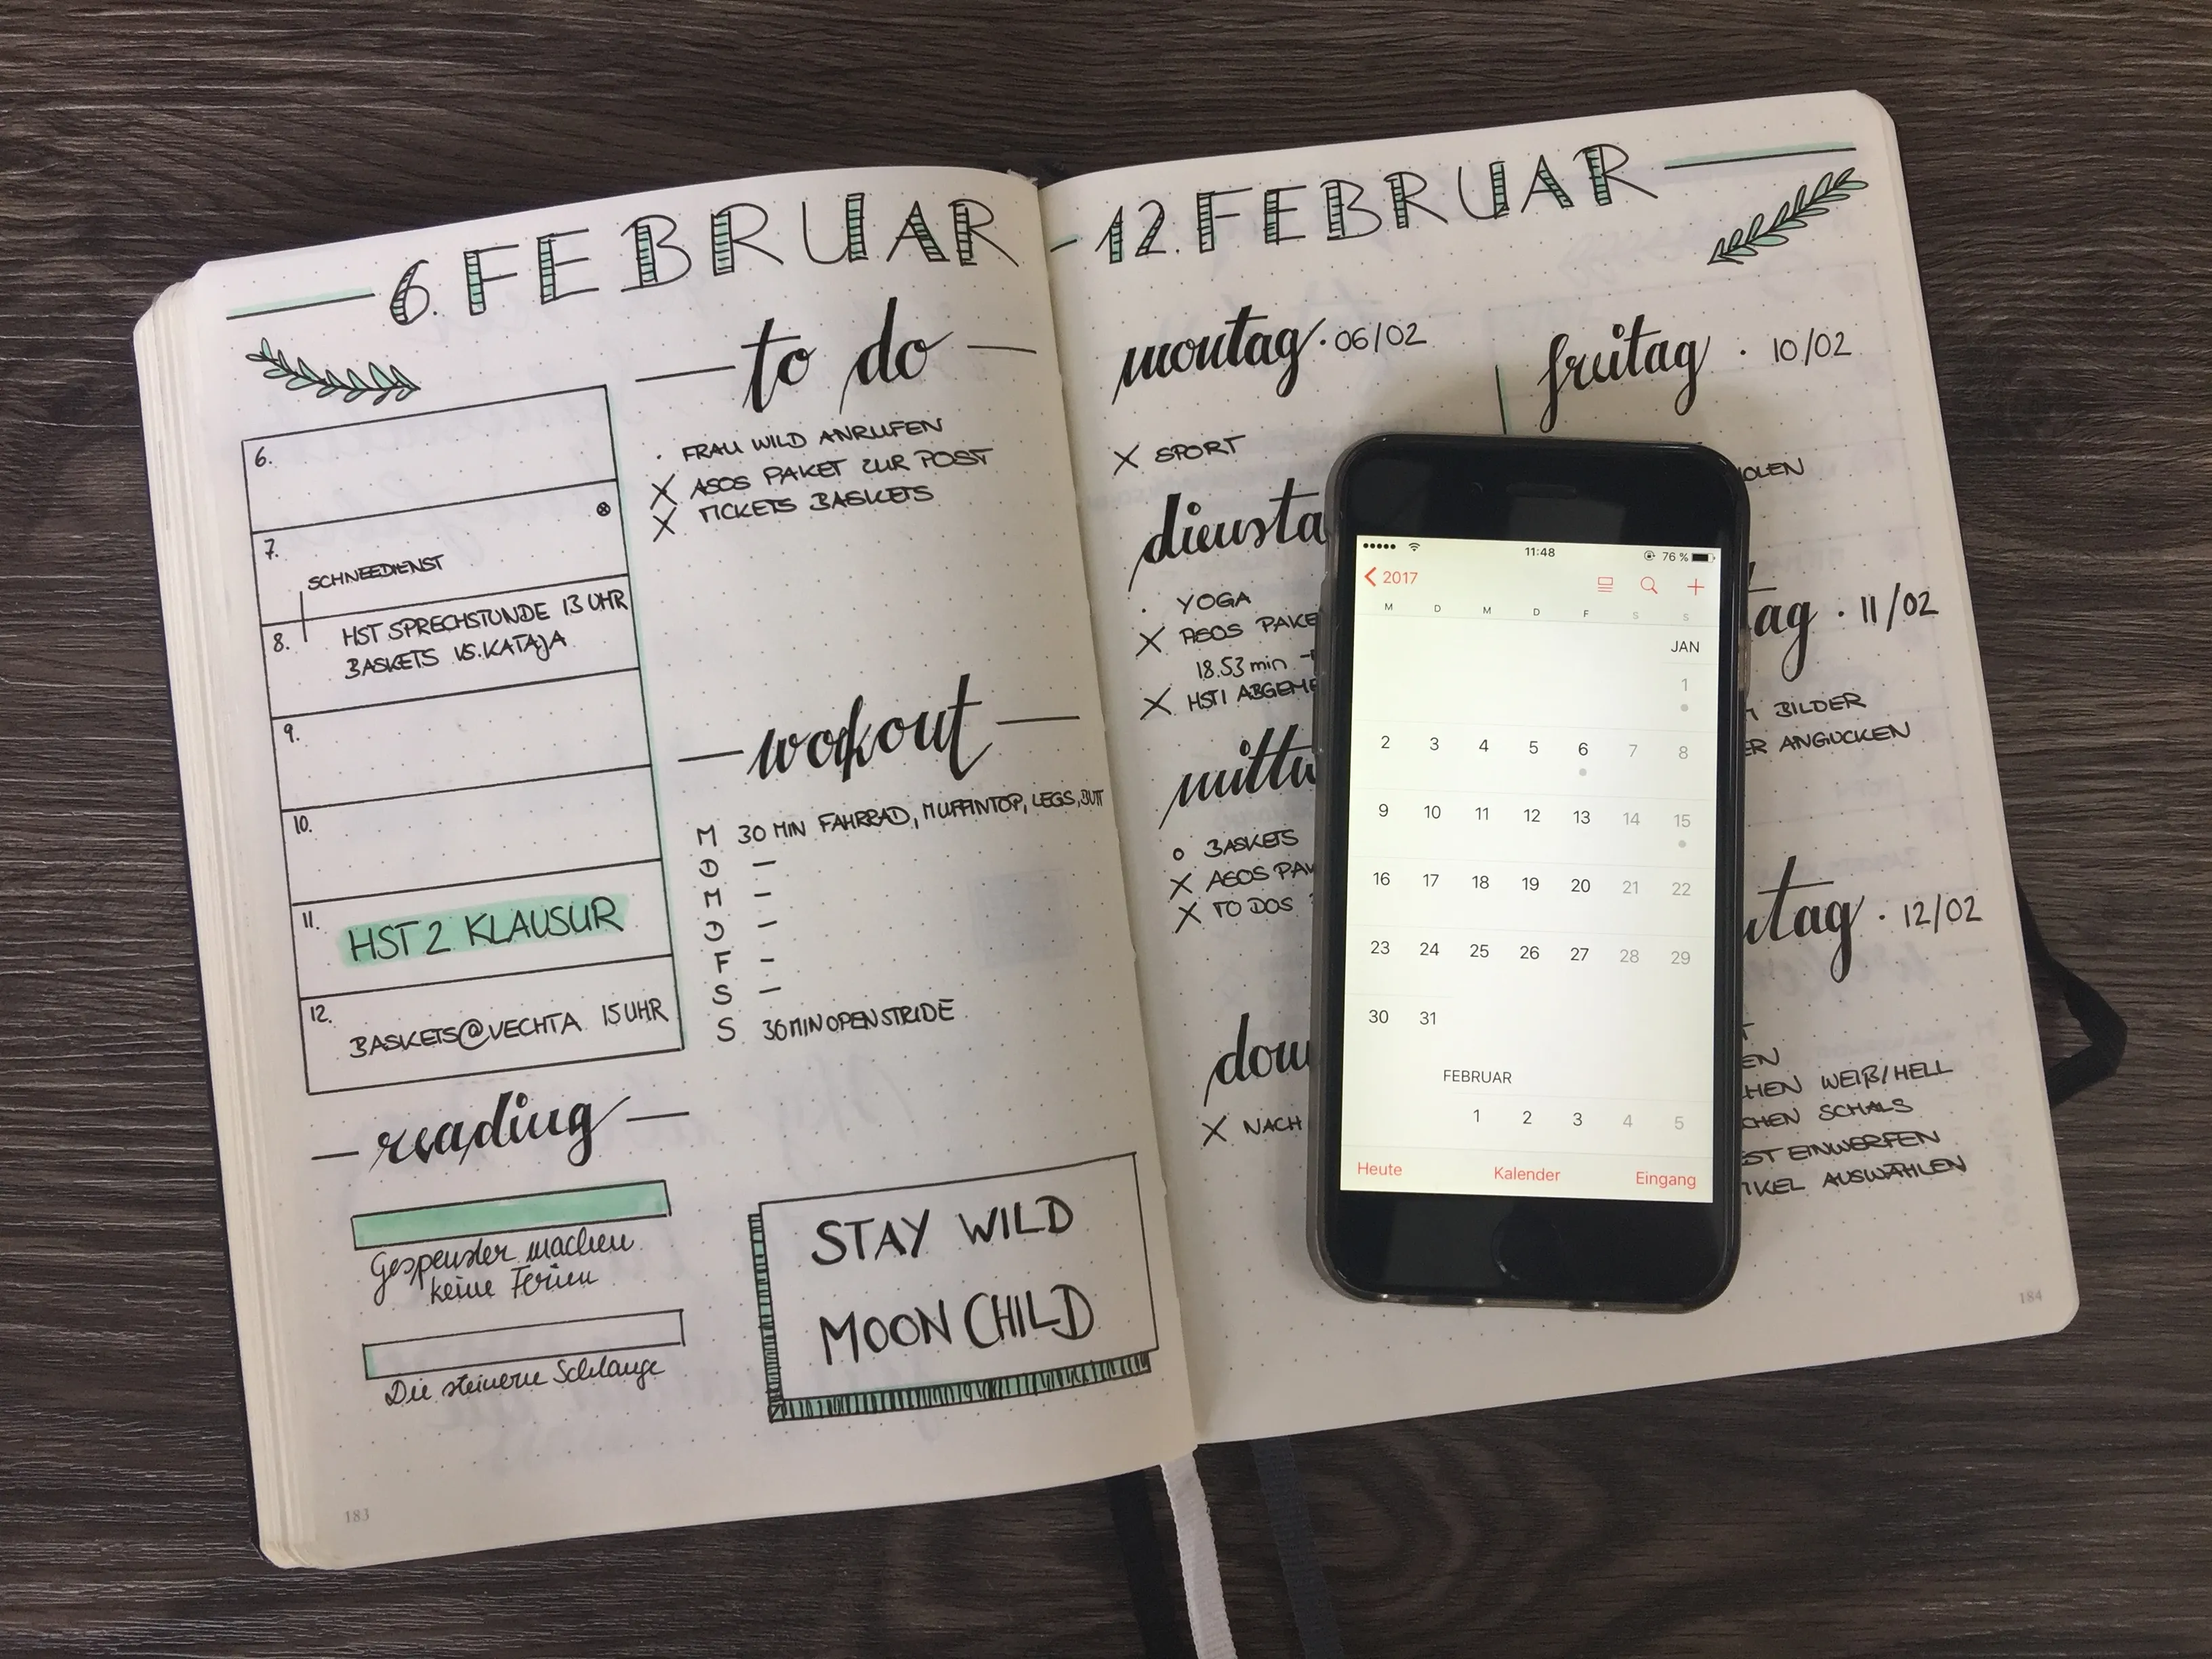 6. FEBRUAR
- 12. FEBRUAR
to do
· FRAU WILD ANRUFEN
X ASOS PAKET ZUR POST
X TICKETS BASKETS
6.
7.
SCHNEEDIENST
8.
HST SPRECHSTUNDE 13 UHR
BASKETS VS. KATAJA
9.
10.
11.
HST 2 KLAUSUR
12.
BASKETS@VECHTA 15 UHR
workout
M 30 MIN FAHRRAD, MUFFINTOP, LEGS, BUTT
D –
M –
D –
F –
S –
S 30 MIN OPENSTRIDE
reading
Gespenster machen
keine Ferien
Die steinerne Schlange
STAY WILD
MOON CHILD
183
montag · 06/02
X SPORT
diensta
· YOGA
X ASOS PAKE
18.53 min
X HST1 ABGEME
mittw
BASKETS
X ASOS PAK
X TO DOS
don
X NACH
freitag · 10/02
OLEN
tag · 11/02
BILDER
ER ANGUCKEN
ntag · 12/02
T
EN
HEN WEIß/HELL
CHEN SCHALS
ST EINWERFEN
IKEL AUSWÄHLEN
184
11:48
76 %
2017
M D M D F S S
JAN
1
2 3 4 5 6 7 8
9 10 11 12 13 14 15
16 17 18 19 20 21 22
23 24 25 26 27 28 29
30 31
FEBRUAR
1 2 3 4 5
Heute Kalender Eingang